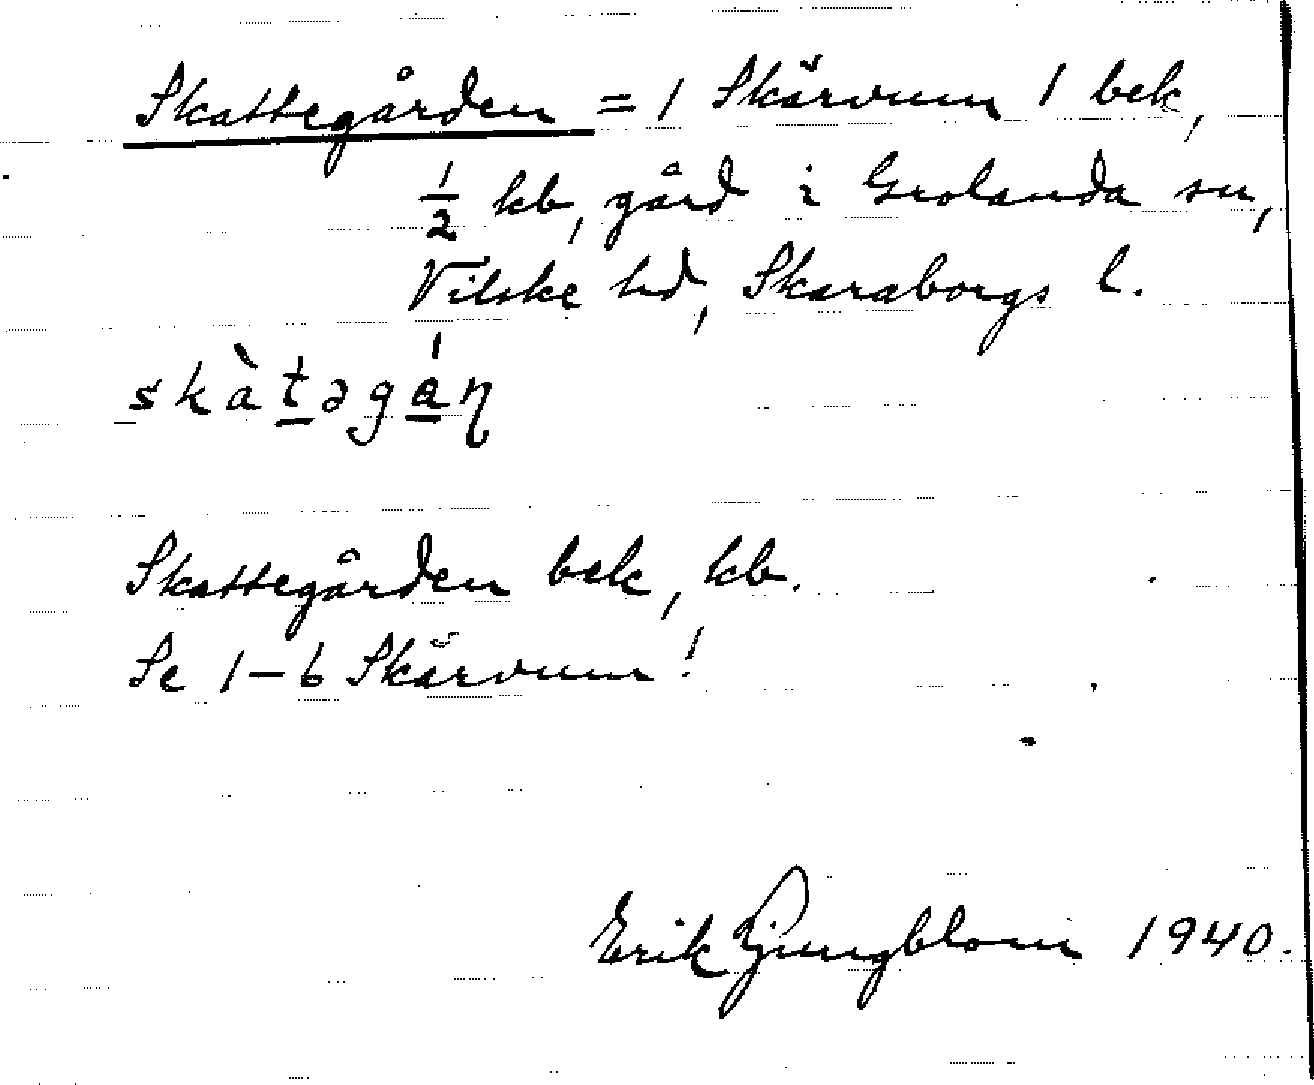 Skattegården = 1 Skärvum 1 bek,
½ kb, gård i Grolanda sn,
Vilske hd, Skaraborgs l.
skàtəgán
Skattegården bek, kb.
Se 1-6 Skärvum!
Erik Ljungblom 1940.